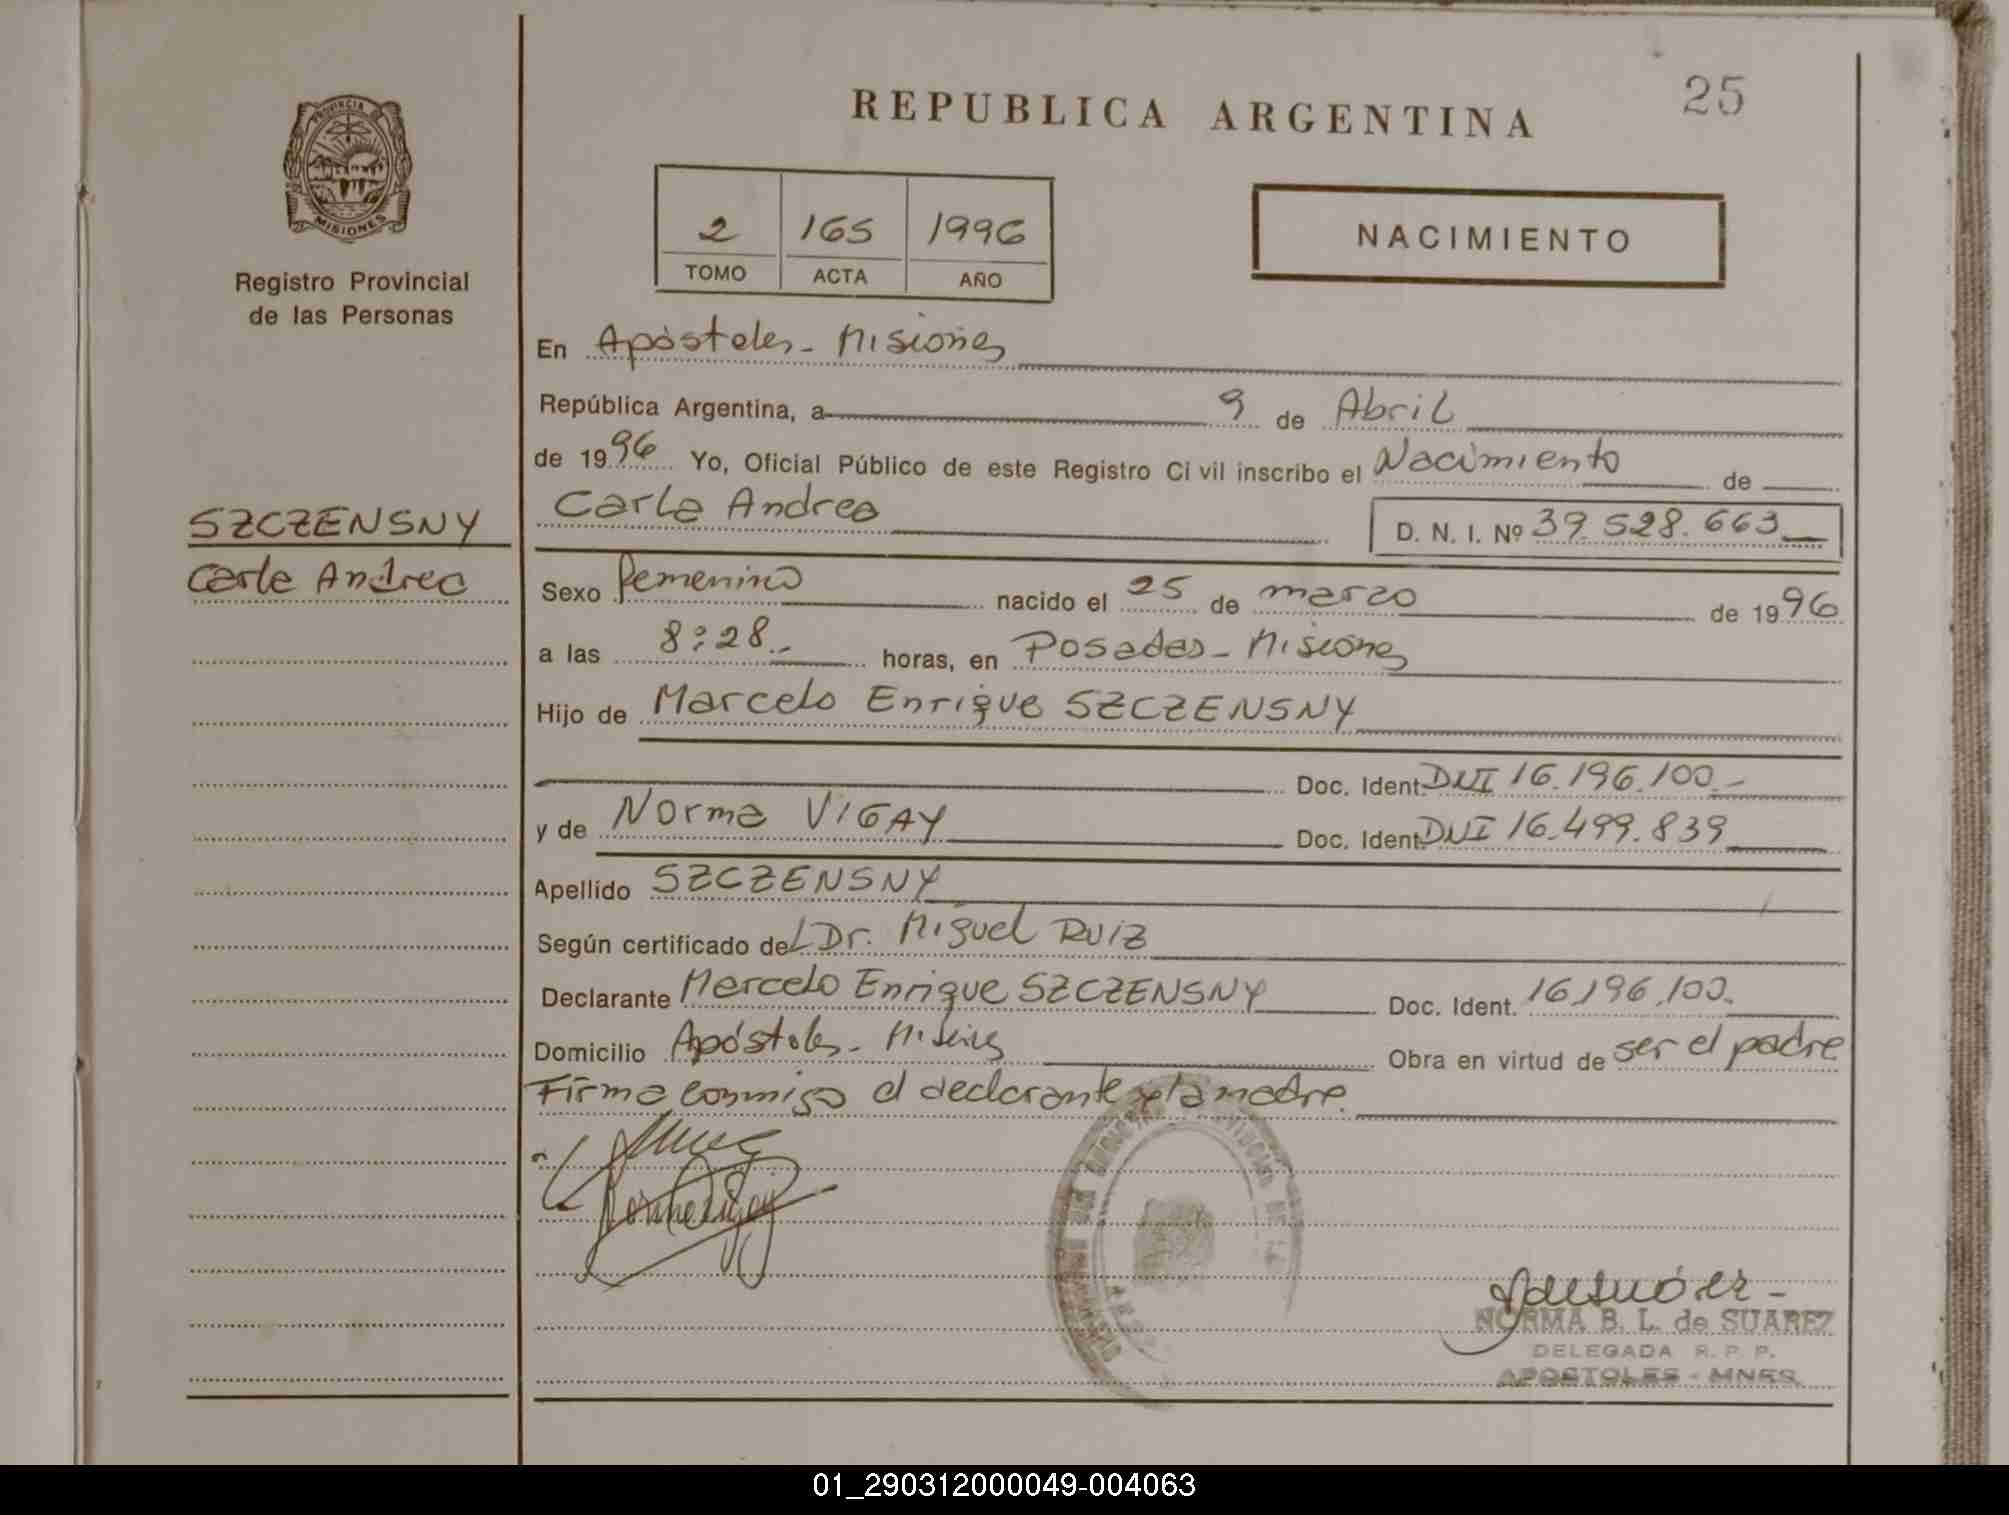 25
REPUBLICA ARGENTINA
PROVINCIA
MISIONES
Registro Provincial
de las Personas
2 165 1996
TOMO ACTA AÑO
NACIMIENTO
En Apóstoles - Misiones
República Argentina, a 9 de Abril
de 1996 Yo, Oficial Público de este Registro Civil inscribo el Nacimiento de
SZCZENSNY
Carla Andrea
Carla Andrea D. N. I. Nº 39.528.663
Sexo femenino nacido el 25 de marzo de 1996
a las 8:28.- horas, en Posadas - Misiones
Hijo de Marcelo Enrique SZCZENSNY
Doc. Ident. DNI 16.196.100.-
y de Norma VIGAY Doc. Ident. DNI 16.499.839
Apellido SZCZENSNY
Según certificado del Dr. Miguel RUIZ
Declarante Marcelo Enrique SZCZENSNY Doc. Ident. 16.196.100.
Domicilio Apóstoles - Misiones Obra en virtud de ser el padre
Firma conmigo el declarante y la madre.
NORMA B. L. de SUAREZ
DELEGADA R. P. P.
APOSTOLES - MNES.
01_290312000049-004063